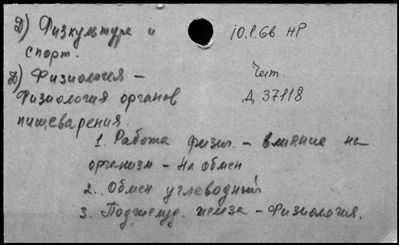 Д) Физкультура и
спорт.
10.1.66 НР
Д) Физиология –
Физиология органов
пищеварения.
Чит.
Д 37118
1. Работа физич. – влияние на
организм – На обмен
2. Обмен углеводный
3. Поджелуд. железа – Физиология.